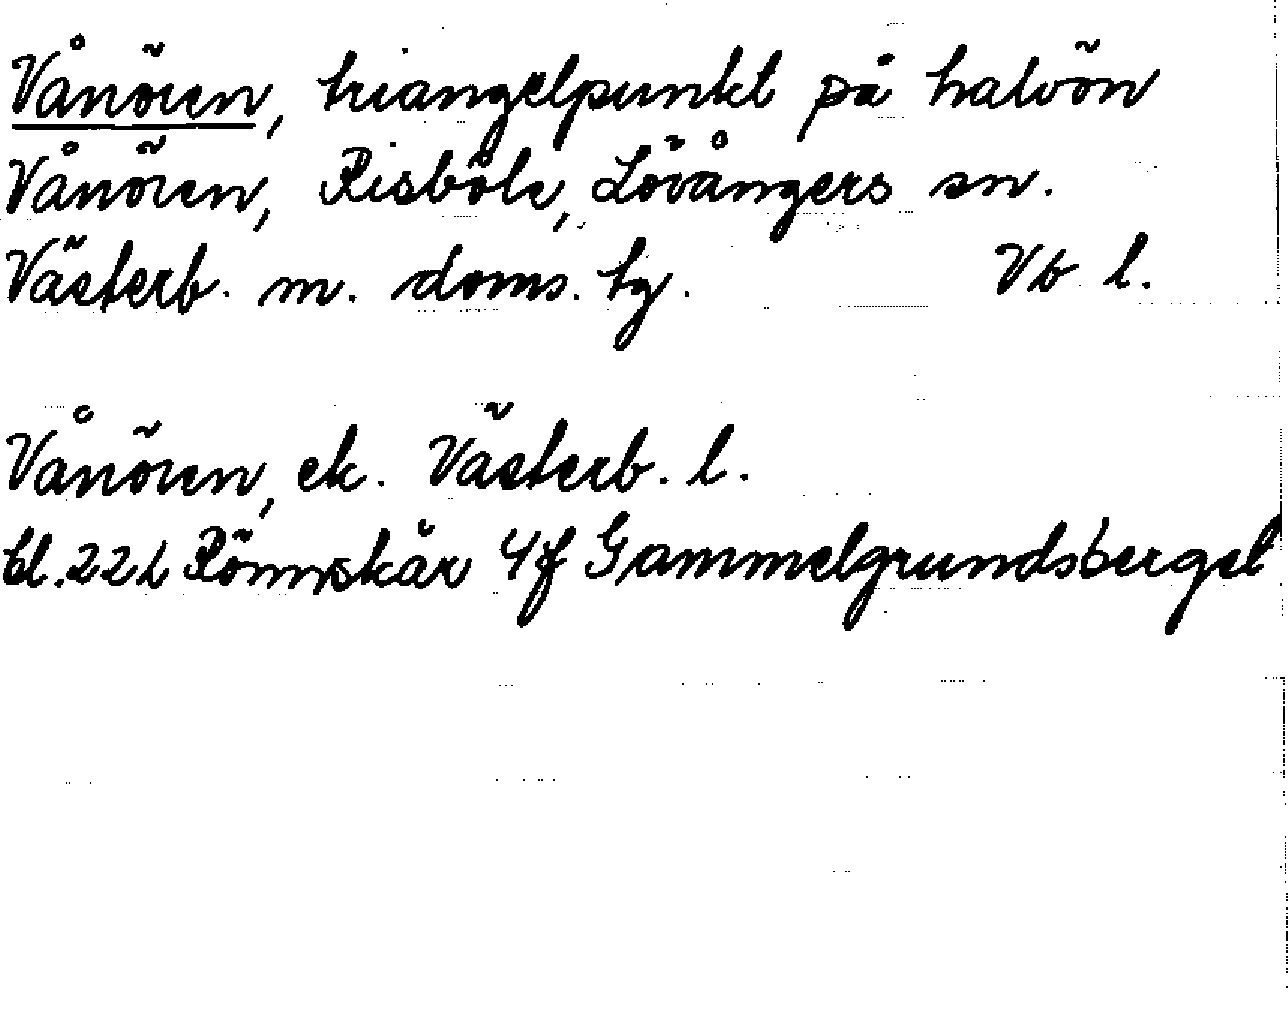 Vånören, triangelpunkt på halvön
Vånören, Risböle, Lövångers sn.
Västerb. m. doms. tg. Vb l.
Vånören, ek. Västerb. l.
bl. 22L Rönnskär 4f Gammelgrundsberget